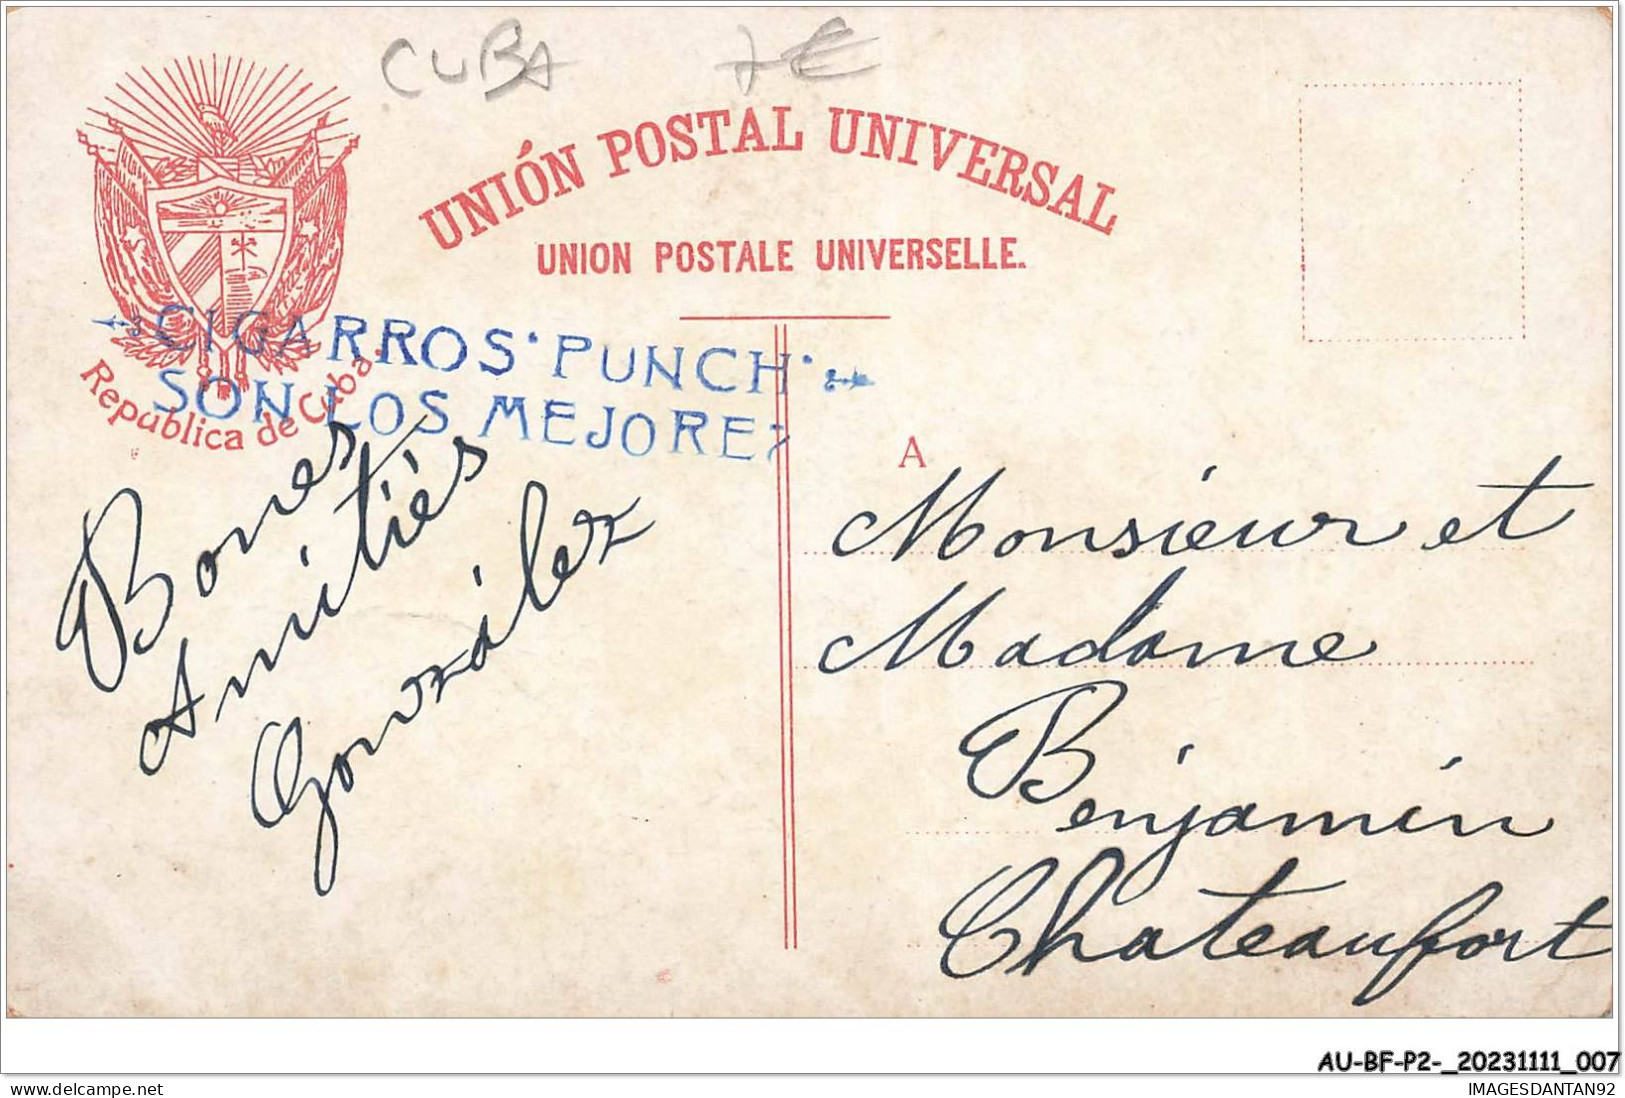 CUBA 7€
UNIÓN POSTAL UNIVERSAL
UNION POSTALE UNIVERSELLE.
República de Cuba.
CIGARROS "PUNCH"
SON LOS MEJORES
Bones
Amitiés
González
A
Monsieur et
Madame
Benjamin
Chateaufort
AU-BF-P2-_20231111_007
delcampe.net
IMAGESDANTAN92